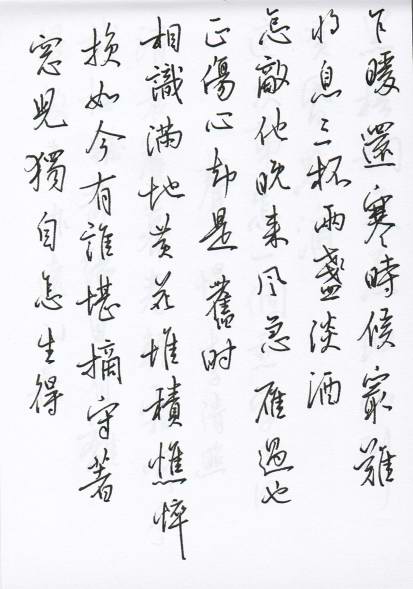 乍暖還寒時候最難
将息三杯兩盞淡酒
怎敵他晚来风急雁過也
正傷心却是舊时
相識滿地黄花堆積憔悴
損如今有誰堪摘守著
窓兒獨自怎生得